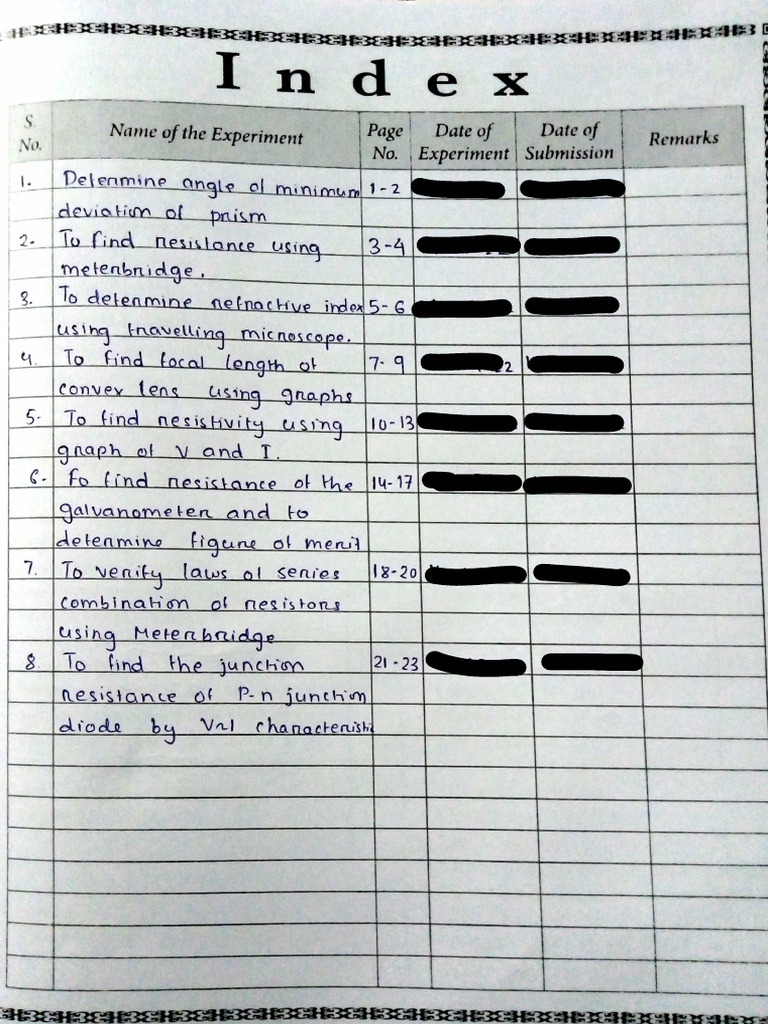 Index
S. No. Name of the Experiment Page No. Date of Experiment Date of Submission Remarks
1. Determine angle of minimum 1-2
deviation of prism
2. To find resistance using 3-4
meterbridge.
3. To determine refractive index 5-6
using travelling microscope.
4. To find focal length of 7-9
convex lens using graphs
5. To find resistivity using 10-13
graph of V and I.
6. To find resistance of the 14-17
galvanometer and to
determine figure of merit
7. To verify laws of series 18-20
combination of resistors
using Meterbridge
8. To find the junction 21-23
resistance of P-n junction
diode by V~I characteristic